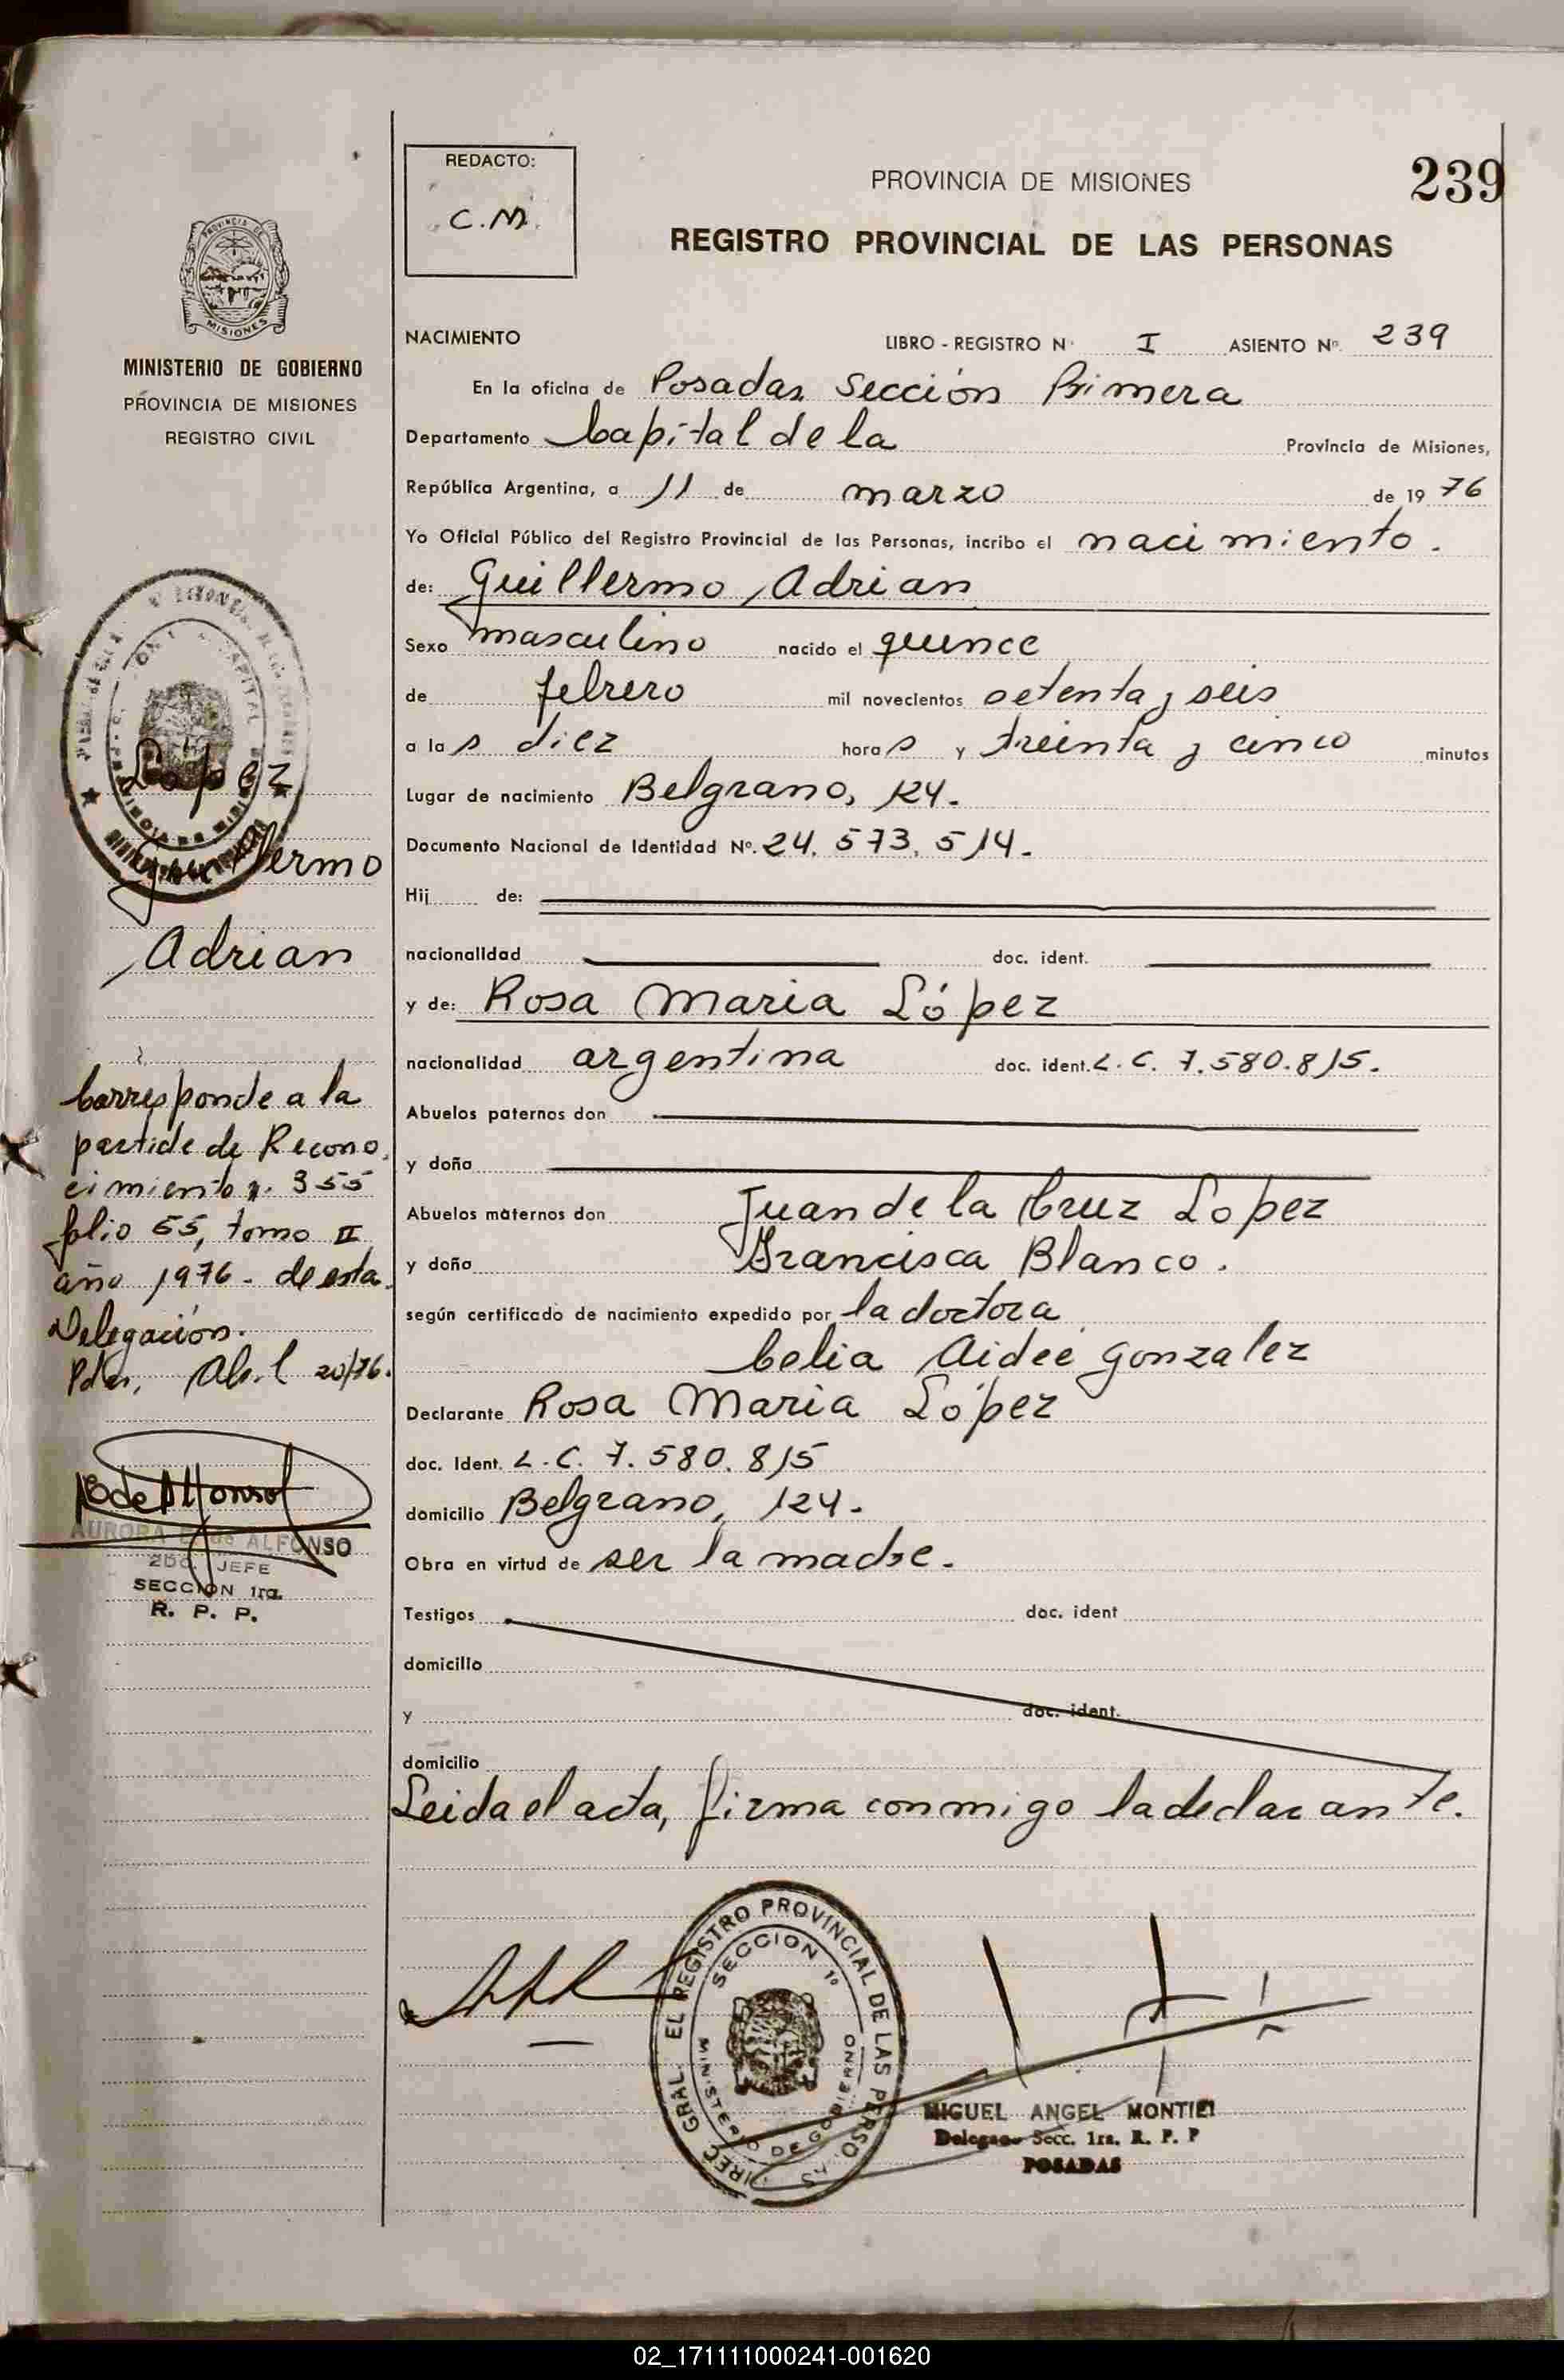 REDACTO:
C.M.
PROVINCIA DE MISIONES
239
REGISTRO PROVINCIAL DE LAS PERSONAS
PROVINCIA DE
MISIONES
MINISTERIO DE GOBIERNO
PROVINCIA DE MISIONES
REGISTRO CIVIL
NACIMIENTO LIBRO - REGISTRO N· I ASIENTO Nº. 239
En la oficina de Posadas Sección Primera
Departamento Capital de la Provincia de Misiones,
República Argentina, a 11 de marzo de 19 76
Yo Oficial Público del Registro Provincial de las Personas, incribo el nacimiento.
de: Guillermo Adrian
Sexo masculino nacido el quince
de febrero mil novecientos setenta y seis
a la s diez hora s y treinta y cinco minutos
Lugar de nacimiento Belgrano, 124.
Documento Nacional de Identidad Nº. 24.573.514.
Hij de:
nacionalidad doc. ident.
y de: Rosa Maria López
nacionalidad argentina doc. ident. L.C. 7.580.815.
Abuelos paternos don
y doña
Abuelos maternos don Juan de la Cruz Lopez
y doña Francisca Blanco.
según certificado de nacimiento expedido por la doctora
Celia Aideé Gonzalez
Declarante Rosa Maria López
doc. Ident. L.C. 7.580.815
domicilio Belgrano, 124.
Obra en virtud de ser la madre.
Testigos doc. ident
domicilio
y doc. ident.
domicilio
Leida el acta, firma conmigo la declarante.
Lopez
Guillermo
Adrian
Corresponde a la
partida de Recono
cimiento n. 355
folio 55, tomo II
año 1976- de esta
Delegación.
Pdas, Abril 20/76.
B de Alfonso
AURORA B. de ALFONSO
2DO. JEFE
SECCION 1ra.
R. P. P.
DIREC GRAL. EL REGISTRO PROVINCIAL DE LAS PERSONAS
SECCION 1º
MINISTERIO DE GOBIERNO
MIGUEL ANGEL MONTIEL
Delegado Secc. 1ra. R. P. P
POSADAS
02_171111000241-001620